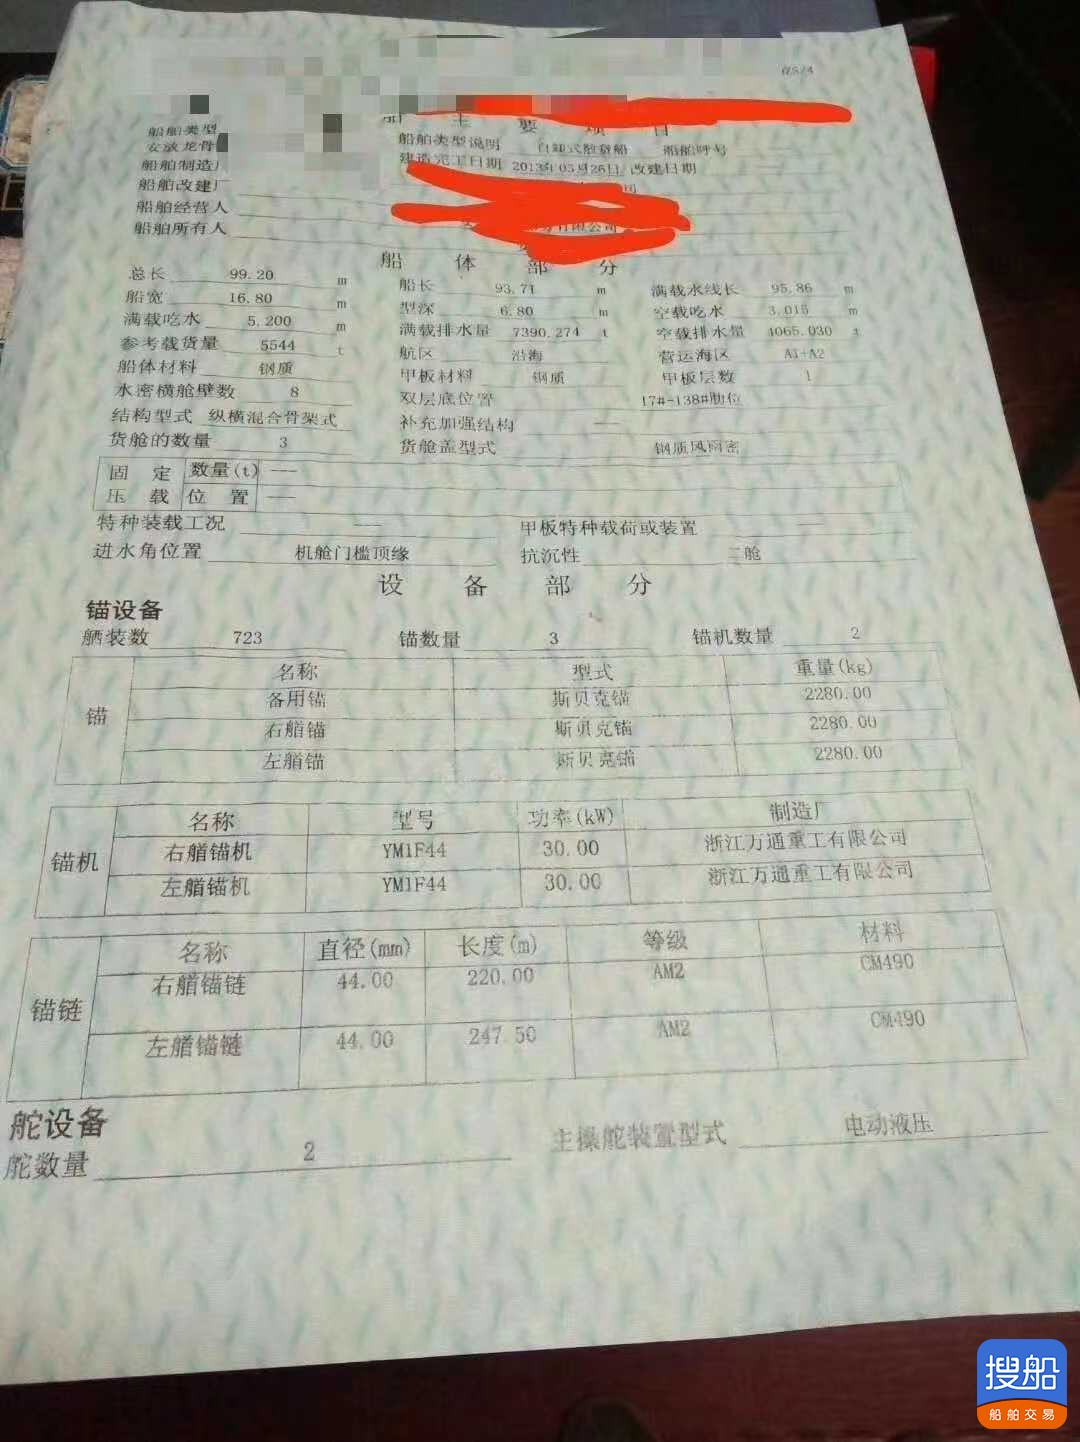 船 主 要 项 目
船舶类型 船舶类型说明 自卸式散货船 船舶呼号
安放龙骨 建造完工日期 2013年05月26日 改建日期
船舶制造厂
船舶改建厂
船舶经营人
船舶所有人 有限公司
船 体 部 分
总长 99.20 m 船长 93.71 m 满载水线长 95.86 m
船宽 16.80 m 型深 6.80 m 空载吃水 3.015 m
满载吃水 5.200 m 满载排水量 7390.274 t 空载排水量 4065.030 t
参考载货量 5544 t 航区 沿海 营运海区 A1+A2
船体材料 钢质 甲板材料 钢质 甲板层数 1
水密横舱壁数 8 双层底位置 17#-138#肋位
结构型式 纵横混合骨架式 补充加强结构 ——
货舱的数量 3 货舱盖型式 钢质风雨密
固 定 数量(t) ———
压 载 位 置 ———
特种装载工况 —— 甲板特种载荷或装置
进水角位置 机舱门槛顶缘 抗沉性 二舱
设 备 部 分
锚设备
舾装数 723 锚数量 3 锚机数量 2
名称 型式 重量(kg)
锚
备用锚 斯贝克锚 2280.00
右艏锚 斯贝克锚 2280.00
左艏锚 斯贝克锚 2280.00
名称 型号 功率(kW) 制造厂
锚机
右艏锚机 YM1F44 30.00 浙江万通重工有限公司
左艏锚机 YM1F44 30.00 浙江万通重工有限公司
名称 直径(mm) 长度(m) 等级 材料
锚链
右艏锚链 44.00 220.00 AM2 CM490
左艏锚链 44.00 247.50 AM2 CM490
舵设备
舵数量 2 主操舵装置型式 电动液压
搜船
船舶交易